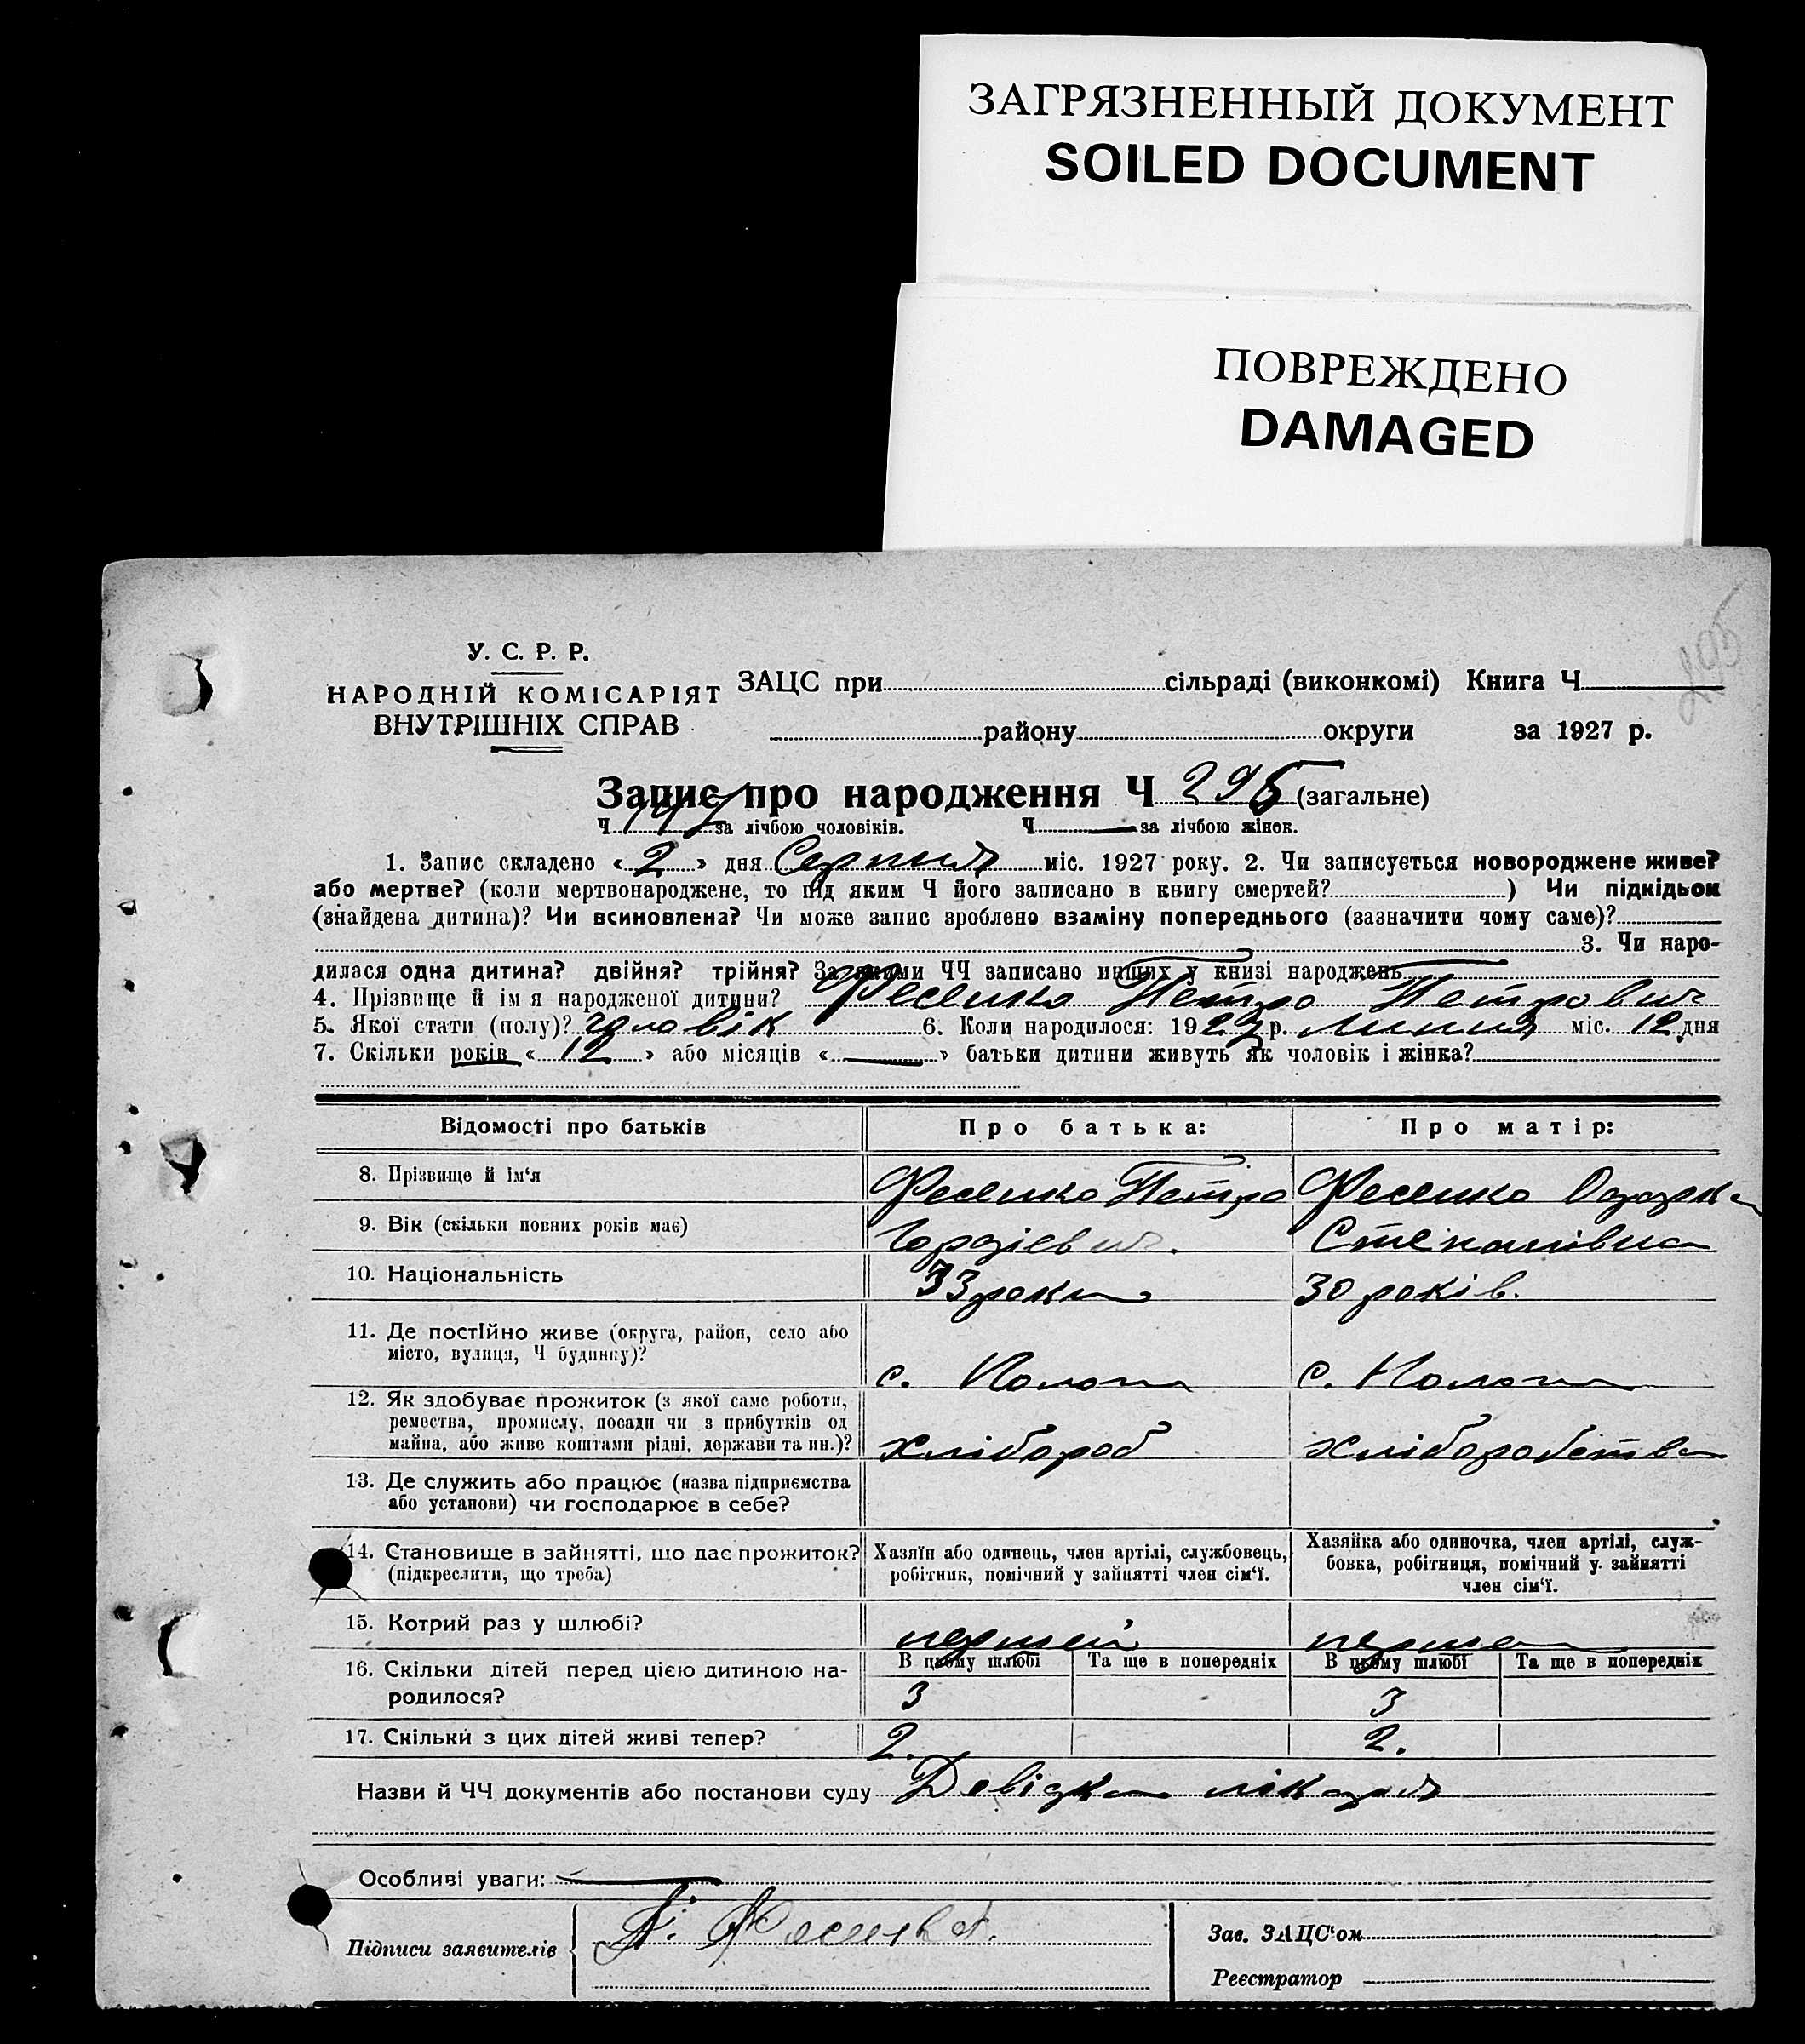 ЗАГРЯЗНЕННЫЙ ДОКУМЕНТ
SOILED DOCUMENT
ПОВРЕЖДЕНО
DAMAGED
295
У. С. Р. Р.
НАРОДНІЙ КОМІСАРІЯТ
ВНУТРІШНІХ СПРАВ
ЗАЦС при сільраді (виконкомі) Книга Ч
району округи за 1927 р.
Запис про народження Ч 295 (загальне)
Ч 147 за лічбою чоловіків. Ч за лічбою жінок.
1. Запис складено «2» дня Серпня міс. 1927 року. 2. Чи записується новороджене живе?
або мертве? (коли мертвонароджене, то під яким Ч його записано в книгу смертей? ) Чи підкідьок
(знайдена дитина)? Чи всиновлена? Чи може запис зроблено взаміну попереднього (зазначити чому саме)?
3. Чи наро-
дилася одна дитина? двійня? трійня? За якими ЧЧ записано инших у книзі народжень
4. Прізвище й ім я народженої дитини? Фесенко Петро Петрович
5. Якої стати (полу)? чоловік 6. Коли народилося: 1927 р. Липня міс. 12 дня
7. Скільки років «12» або місяців « — » батьки дитини живуть як чоловік і жінка?
Відомості про батьків Про батька: Про матір:
8. Прізвище й ім‘я Фесенко Петро Фесенко Одарка
9. Вік (скільки повних років має) Гордієвич. Степанівна
10. Національність 33 роки 30 років.
11. Де постІйно живе (округа, район, село або
місто, вулиця, Ч будинку)?
с. Пологи с. Пологи
12. Як здобуває прожиток (з якої саме роботи,
ремества, промислу, посади чи з прибутків од
майна, або живе коштами рідні, держави та ин.)?
хлібороб хліборобства
13. Де служить або працює (назва підприємства
або установи) чи господарює в себе?
14. Становище в зайнятті, що дає прожиток?
(підкреслити, що треба)
Хазяїн або одинець, член артілі, службовець,
робітник, помічний у зайнятті член сім‘ї.
Хазяйка або одиночка, член артілі, служ-
бовка, робітниця, помічний у зайнятті
член сім‘ї.
15. Котрий раз у шлюбі? перший перша
16. Скільки дітей перед цією дитиною на-
родилося?
В цьому шлюбі Та ще в попередніх В цьому шлюбі Та ще в попередніх
3 3
17. Скільки з цих дітей живі тепер? 2. 2.
Назви й ЧЧ документів або постанови суду Довідка лікаря
Особливі уваги: —
Підписи заявителів
Зав. ЗАЦС‘ом
Реєстратор